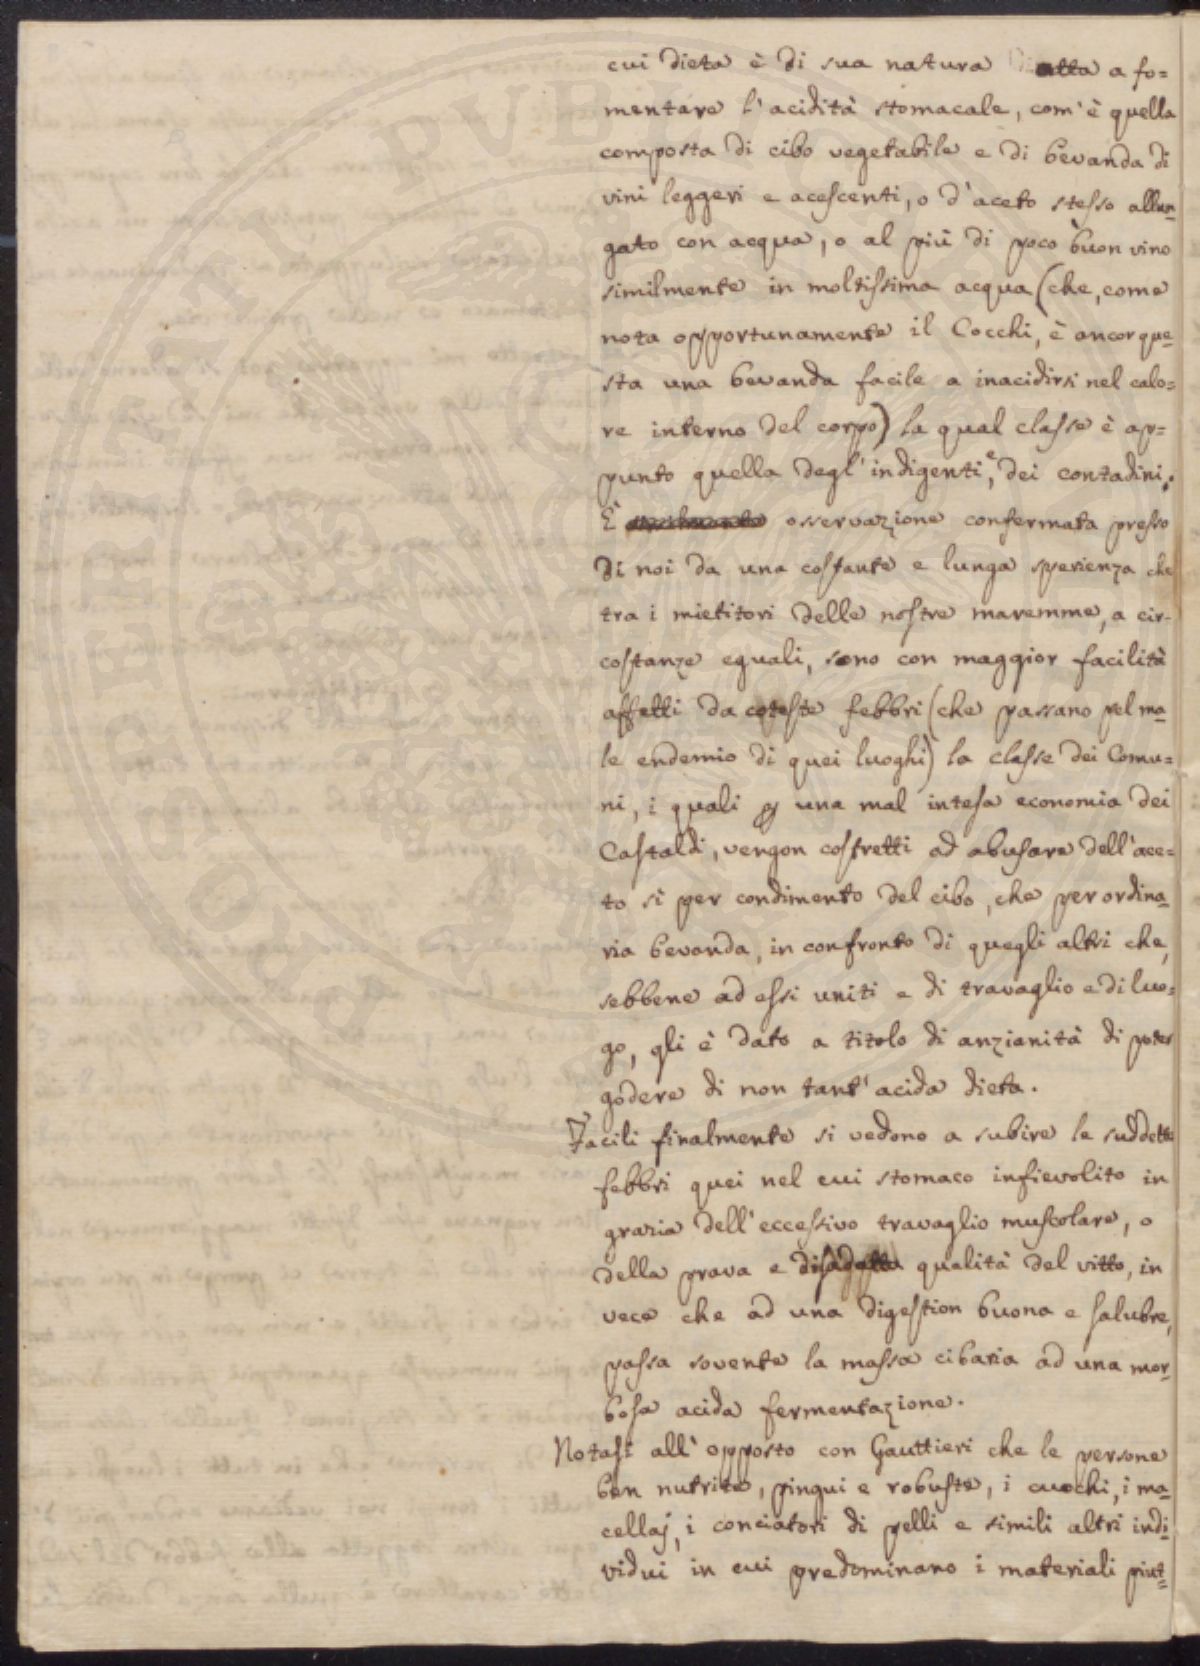 cui dieta è di sua natura atta a fo=
mentare l'acidità stomacale, com'è quella
composta di cibo vegetabile e di bevanda di
vini leggeri e acescenti, o d'aceto stesso allun=
gato con acqua, o al più di poco buon vino
similmente in moltissima acqua (che, come
nota opportunamente il Cocchi, è ancor que=
sta una bevanda facile a inacidirsi nel calo=
re interno del corpo) la qual classe è ap=
punto quella degl'indigenti, e dei contadini.
È osservazione confermata presso
di noi da una costante e lunga sperienza che
tra i mietitori delle nostre maremme, a cir=
costanze eguali, sono con maggior facilità
affetti da coteste febbri (che passano pel ma=
le endemio di quei luoghi) la classe dei Comu=
ni, i quali p una mal intesa economia dei
Castaldi, vengon costretti ad abusare dell'ace=
to sì per condimento del cibo, che per ordina=
ria bevanda, in confronto di quegli altri che,
sebbene ad essi uniti e di travaglio e di luo=
go, gli è dato a titolo di anzianità di poter
godere di non tant'acida dieta.
Facili finalmente si vedono a subire le suddette
febbri quei nel cui stomaco infievolito in
grazia dell'eccessivo travaglio muscolare, o
della prava e disadatta qualità del vitto, in
vece che ad una digestion buona e salubre,
passa sovente la massa cibaria ad una mor=
bosa acida fermentazione.
Notasi all'opposto con Gauttieri che le persone
ben nutrite, pingui e robuste, i cuochi, i ma=
cellaj, i conciatori di pelli e simili altri indi=
vidui in cui predominano i materiali piut=